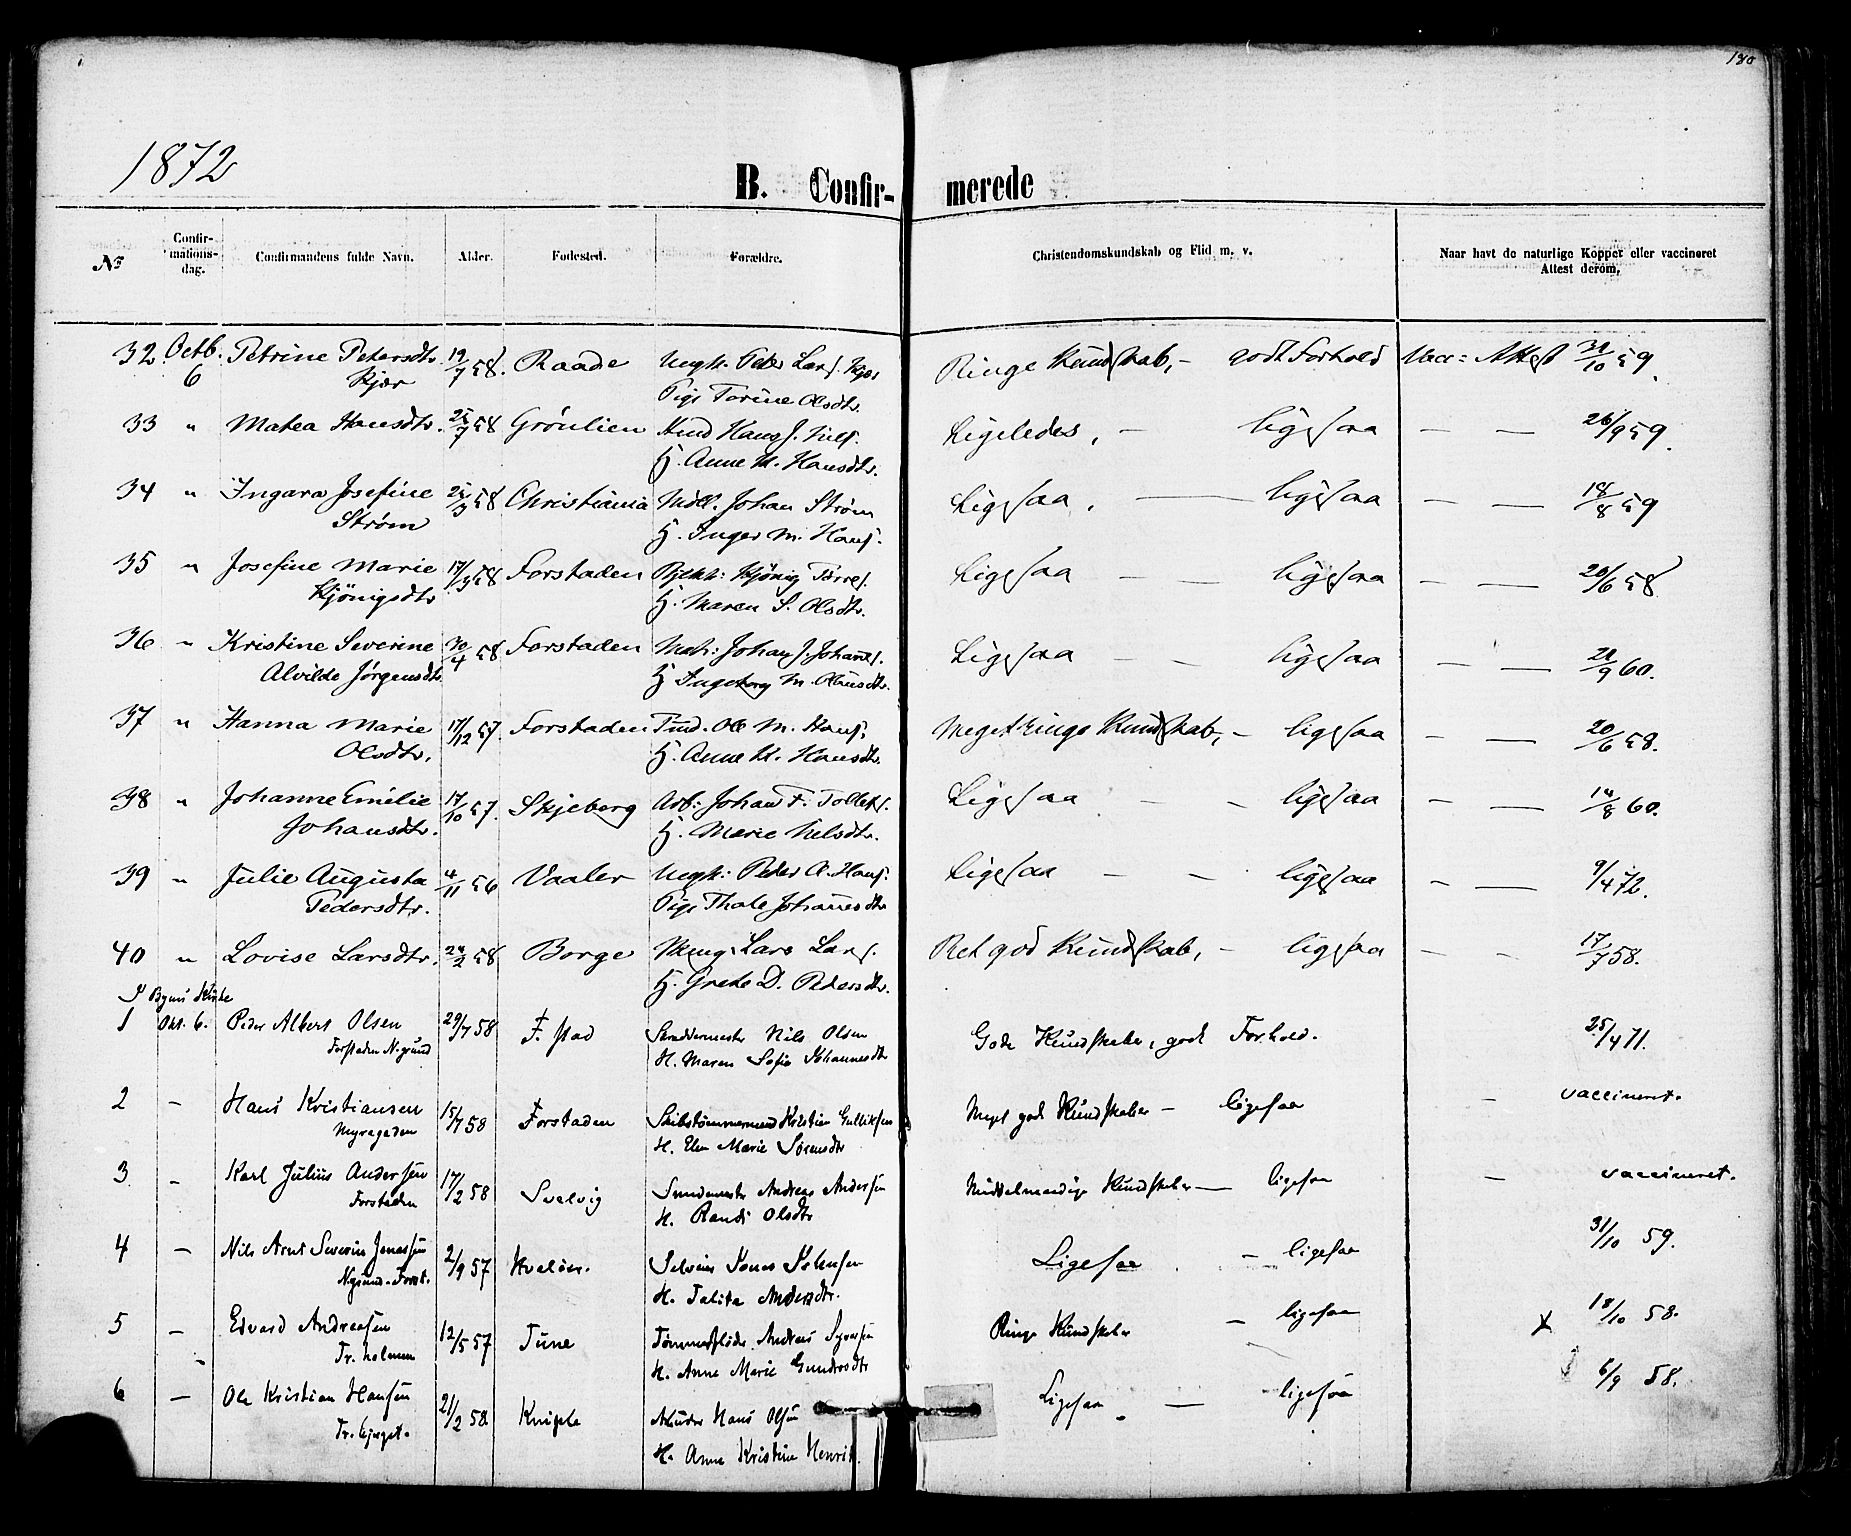 180
1872
B. Confirmerede
No
Confirmationsdag.
Confirmandens fulde Navn.
Alder.
Fødested.
Forældre.
Christendomskundskab og Flid m. v.
Naar havt de naturlige Kopper eller vaccineret
Attest derom.
32 Octb. Petrine Petersdtr. 19/7 58. Raade Ungk. Peder Lars. Kjær Ringe Kundskab, - godt Forhold Vacc: Attest 31/10 59.
6 Kjær Pige Torine Olsdtr.
33 " Matea Hansdtr. 25/7 58 Grønlien Hans J. Nils. Ligeledes, - ligesaa — — 26/9 59.
H. Anne M. Hansdtr.
34 " Ingara Josefine 25/3 58 Christiania Møll. Johan Strøm Ligesaa, — ligesaa — — 18/8 59
Strøm H. Inger M. Hans.
35 " Josefine Marie 17/3 58 Forstaden Kjønig Torres. Ligesaa — — ligesaa — — 20/6 58
Kjönigsdtr H. Maren S. Olsdtr.
36 " Kristine Severine 30/4 58 Forstaden Johan J. Johans. Ligesaa — — ligesaa — — 21/9 60.
Alvilde Jørgensdtr. H Ingeborg M. Olausdtr.
37 " Hanna Marie 17/12 57 Forstaden Ole M. Hans. Meget ringe Kundskab, - ligesaa — — 20/6 58.
Olsdtr. H. Anne K. Hansdtr.
38 " Johanne Emelie 17/10 57. Skjeberg Arb: Johan F. Tollefs. Ligesaa — — ligesaa — — 14/8 60.
Johansdtr. H. Marie Nilsdtr.
39 " Julie Augusta 4/11 56 Vaaler Ungk: Peder A. Hans. Ligesaa — — ligesaa — — 9/4 72.
Pedersdtr. Pige Thale Johannesdtr
40 " Lovise Larsdtr. 24/2 58 Borge Lars Lars. Ret god Kundskab, - ligesaa — - 17/7 58.
H. Grete D. Pedersdtr.
I Byens Kirke
1 Okt. 6. Peder Albert Olsen 29/7 58 F. stad Skræddermester Nils Olsen Gode Kundskaber, godt Forhold. 25/4 71.
Forstaden N. grund H. Maren Sofie Johannesdtr
2 — Hans Kristiansen 15/7 58 Forstaden Skibstømmermand Kristian Gulliksen Meget gode Kundskaber — ligesaa - vaccineret.
Myragaden H. Elen Marie Sørensdtr
3 — Karl Julius Andersen 17/2 58 Svelvig Andreas Andersen Middelmaadige Kundskaber — ligesaa — vaccineret.
Forstaden H. Randi Olsdtr
4 — Nils Arnt Severin Jonassen 2/9 57 Hvaløer. Jonas Johnsen Ligesaa — ligesaa 31/10 59.
N. grund. Forst. H. Talita Andersdtr.
5 — Edvard Andreasen 12/5 57 Tune Tømmerfløder Andreas Syversen Ringe Kundskaber — ligesaa x 18/10 58.
Tr. holmen H. Anne Marie Gundersdtr
6 — Ole Kristian Hansen 21/2 58 Kniple Hans Olsen Ligesaa — ligesaa 6/9 58.
Tr. bjerget. H. Anne Kristine Henrik